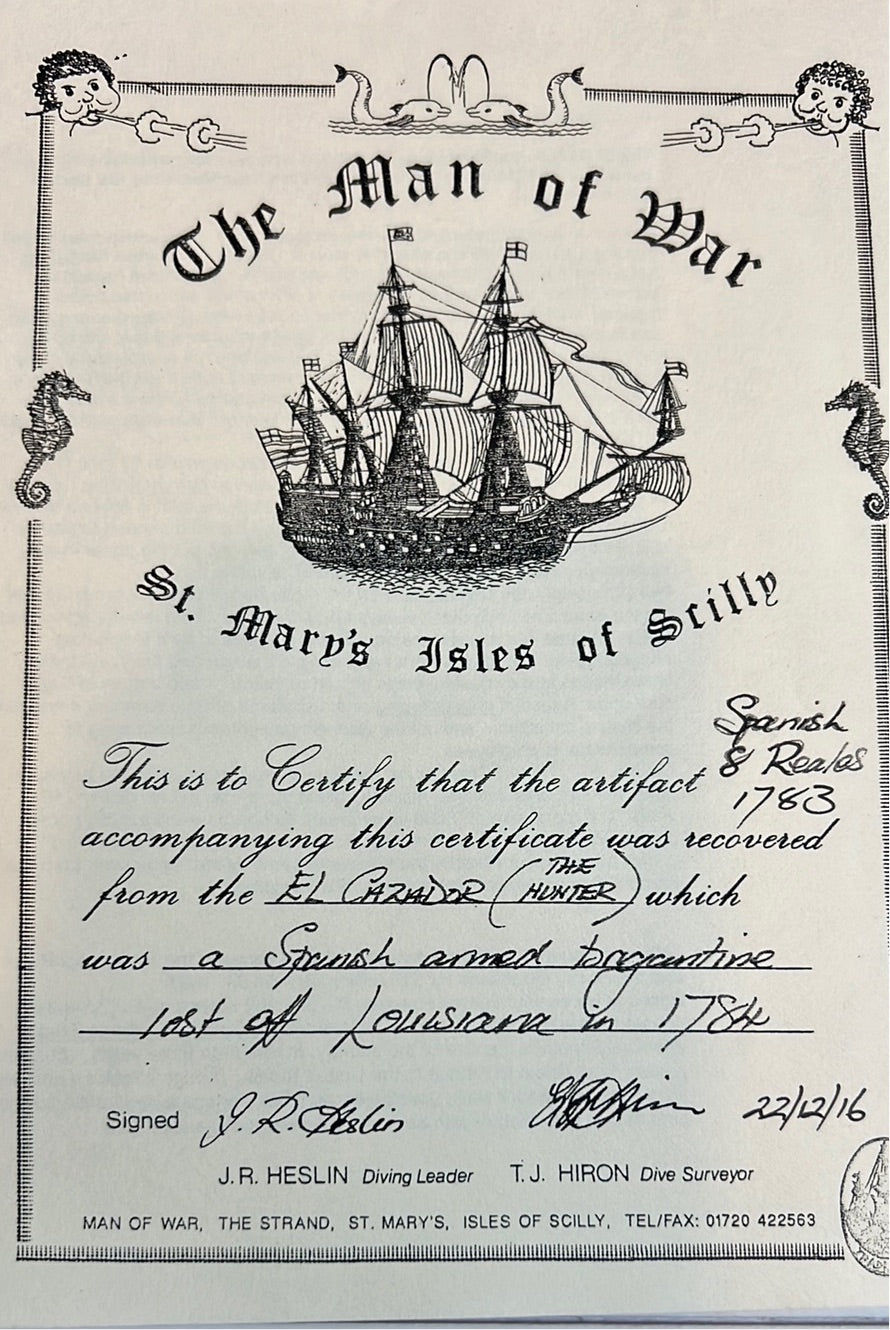 The Man of War
St. Mary's Isles of Scilly
Spanish
8 Reales
1783
This is to Certify that the artifact
accompanying this certificate was recovered
from the EL CAZADOR (THE HUNTER) which
was a Spanish armed bragantine
lost off Louisiana in 1784
Signed J. R. Heslin 22/12/16
J.R. HESLIN Diving Leader T.J. HIRON Dive Surveyor
MAN OF WAR, THE STRAND, ST. MARY'S, ISLES OF SCILLY, TEL/FAX: 01720 422563